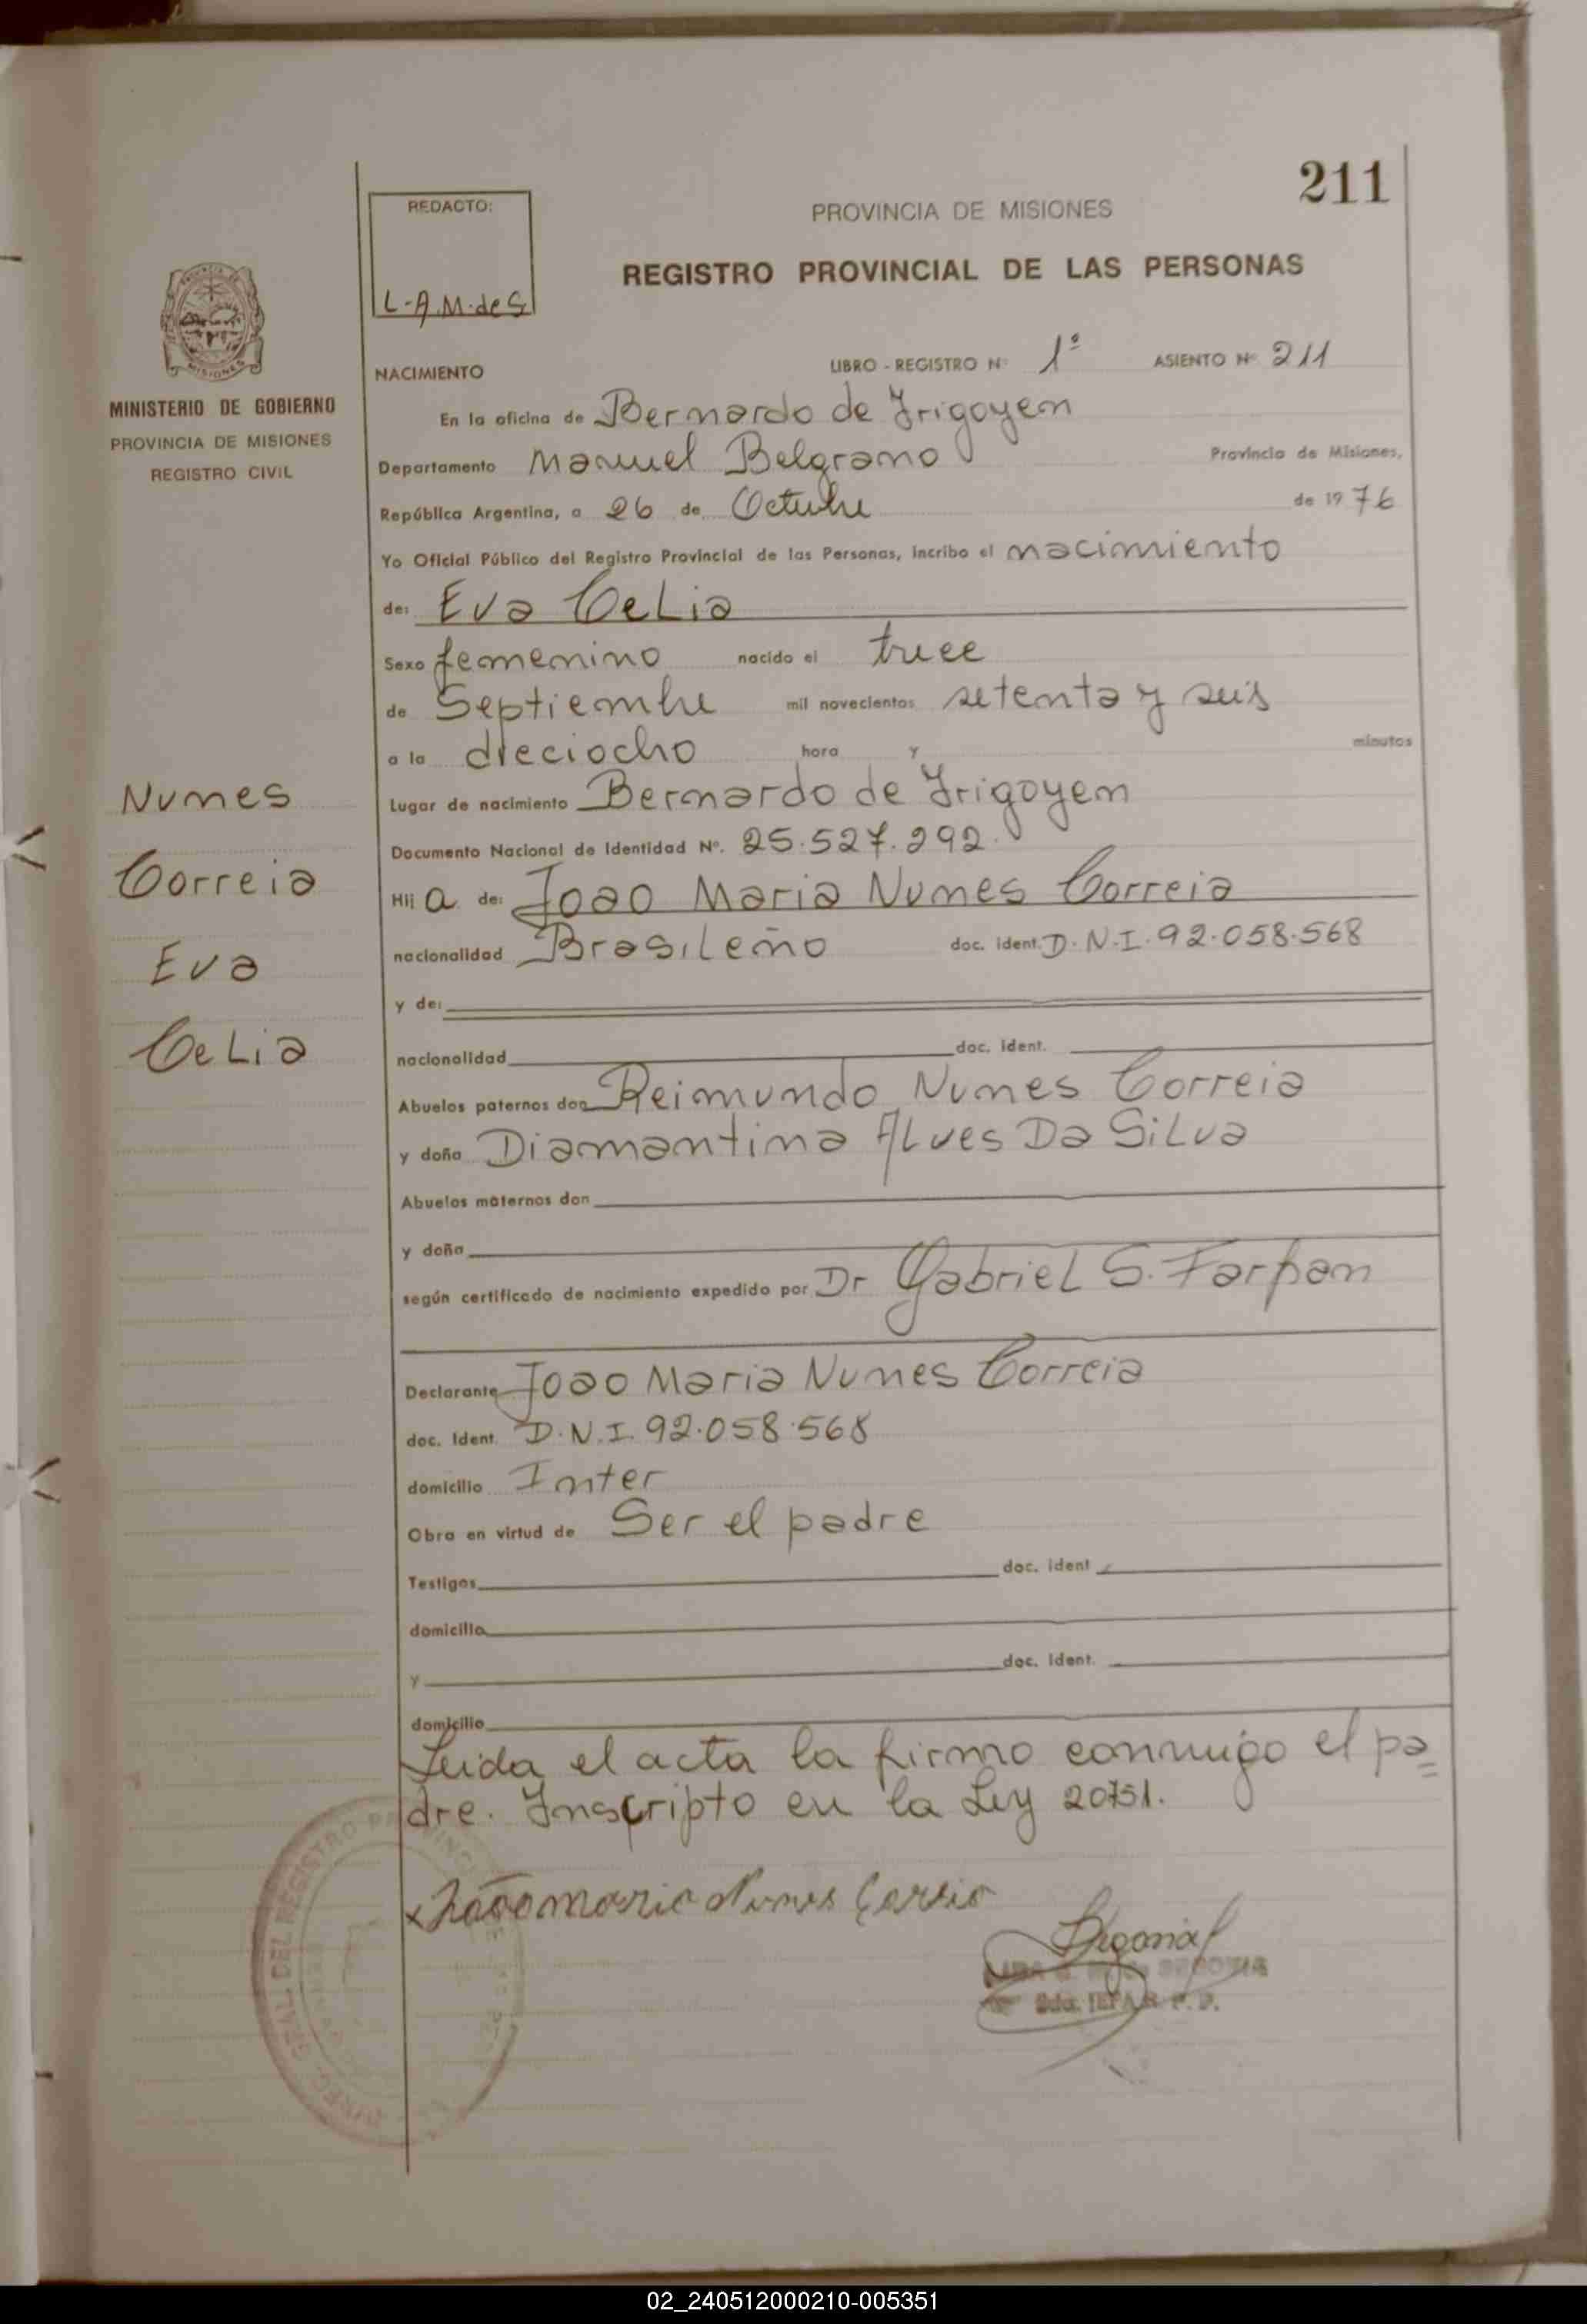 211
REDACTO:
L-A.M.de S
PROVINCIA DE MISIONES
REGISTRO PROVINCIAL DE LAS PERSONAS
MISIONES
MINISTERIO DE GOBIERNO
PROVINCIA DE MISIONES
REGISTRO CIVIL
NACIMIENTO LIBRO - REGISTRO Nº 1º ASIENTO Nº 211
En la oficina de Bernardo de Irigoyen
Departamento Manuel Belgrano Provincia de Misiones,
República Argentina, a 26 de Octubre de 1976
Yo Oficial Público del Registro Provincial de las Personas, incribo el nacimiento
de: Eva Celia
Sexo femenino nacido el trece
de Septiembre mil novecientos setenta y seis
a la dieciocho hora y minutos
Nunes
Correia
Eva
Celia
Lugar de nacimiento Bernardo de Irigoyen
Documento Nacional de Identidad Nº. 25.527.292.
Hij a de: Joao Maria Nunes Correia
nacionalidad Brasileño doc. ident. D.N.I. 92.058.568
y de:
nacionalidad doc. ident.
Abuelos paternos don Reimundo Nunes Correia
y doña Diamantina Alves Da Silva
Abuelos maternos don
y doña
según certificado de nacimiento expedido por Dr Gabriel S. Farfan
Declarante Joao Maria Nunes Correia
doc. Ident. D.N.I. 92.058.568
domicilio Inter
Obra en virtud de Ser el padre
Testigos doc. ident
domicilio
y doc. Ident.
domicilio
Leida el acta la firma conmigo el pa=
dre. Inscripto en la Ley 20751.
x João maria Nunes Correia
SEGOVIA
DIREC. GRAL. DEL REGISTRO PROVINCIAL
02_240512000210-005351